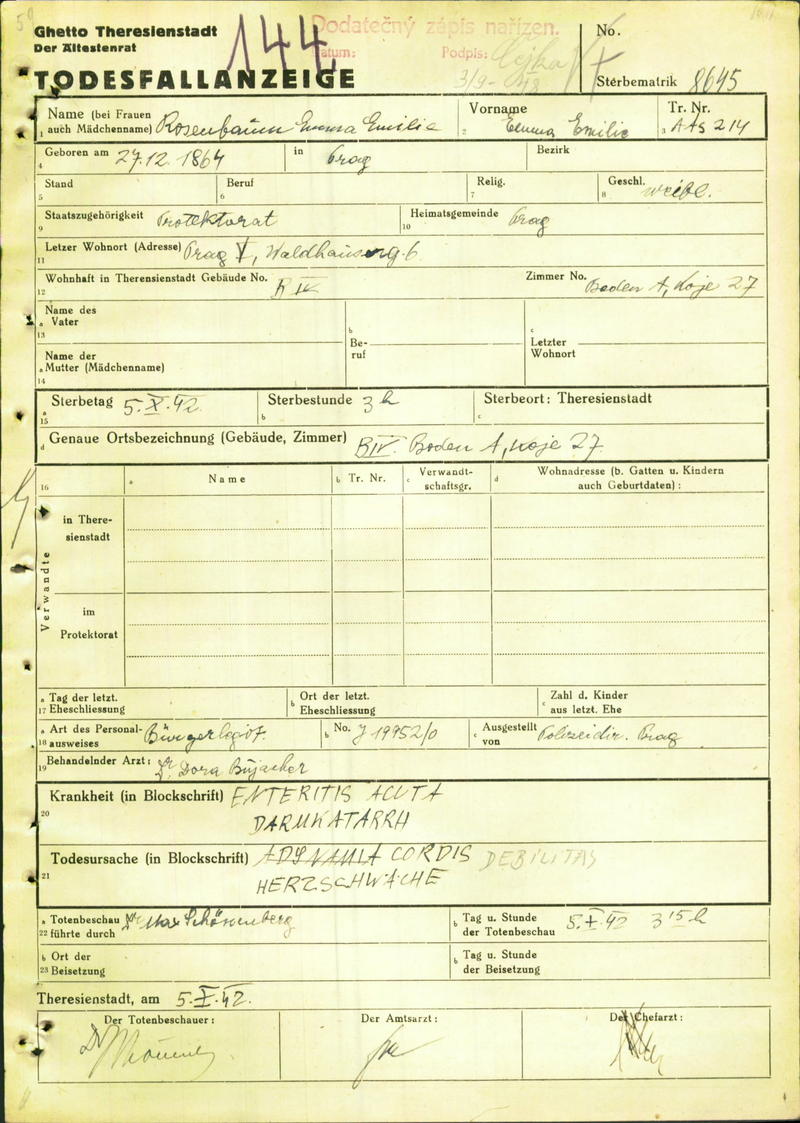 Ghetto Theresienstadt
Der Ältestenrat
TODESFALLANZEIGE
144
Dodatečný zápis nařízen.
Datum: Podpis:
3/9 - 48
No.
Sterbematrik 8645
Name (bei Frauen auch Mädchenname) Rosenbaum Emma Emilie
1
Vorname Emma Emilie
2
Tr. Nr.
3 AAs 214
Geboren am 27.12. 1864 in Prag Bezirk
4
Stand Beruf Relig. Geschl. weibl.
5 6 7 8
Staatszugehörigkeit Protektorat Heimatsgemeinde Prag
9 10
Letzer Wohnort (Adresse) Prag V,
11
Wohnhaft in Therensienstadt Gebäude No. B IV Zimmer No. Boden A, Koje 27
12
Name des
a Vater
13
b
Be-
ruf
c
Letzter
Wohnort
Name der
a Mutter (Mädchenname)
14
Sterbetag 5.X.42. Sterbestunde 3 h Sterbeort: Theresienstadt
a 15 b c
d Genaue Ortsbezeichnung (Gebäude, Zimmer) BIV. Boden A, Koje 27
16 a Name b Tr. Nr. c Verwandt-
schaftsgr. d Wohnadresse (b. Gatten u. Kindern
auch Geburtdaten):
Verwandte
in There-
sienstadt
im
Protektorat
a Tag der letzt.
17 Eheschliessung
b Ort der letzt.
Eheschliessung
c Zahl d. Kinder
aus letzt. Ehe
a Art des Personal-
18 ausweises Bürgerlegit.
b No. J 19952/0
c Ausgestellt
von Polizeidir. Prag
19 Behandelnder Arzt: Dr. Dora
Krankheit (in Blockschrift) ENTERITIS ACUTA
20 DARMKATARRH
Todesursache (in Blockschrift) ADYNAMIA CORDIS DEBILITAS
21 HERZSCHWÄCHE
a Totenbeschau
22 führte durch Dr Max Schönenberg
b Tag u. Stunde
der Totenbeschau 5.X.42 3 15 h
b Ort der
23 Beisetzung
b Tag u. Stunde
der Beisetzung
Theresienstadt, am 5.X.42.
Der Totenbeschauer: Der Amtsarzt: Der Chefarzt: